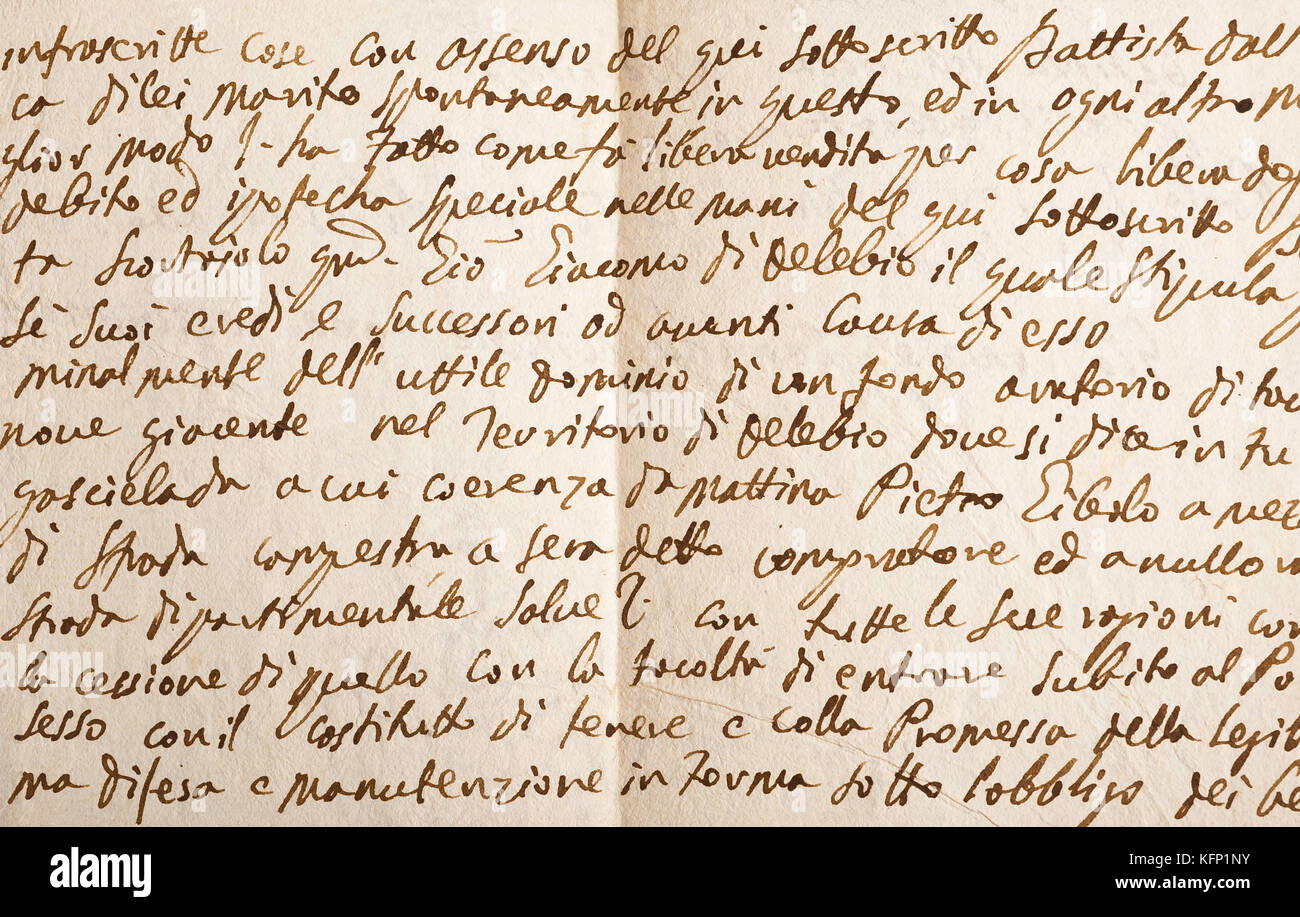 infrascritte cose con assenso del qui sottoscritto Battista dall
ca di lei Marito spontaneamente in questo, ed in ogni altro m
glior modo ha fatto come fà libera vendita per cosa libera da
debito ed ipotecha speciale nelle mani del qui sottoscritto
ta qm. Gio Giacomo di Delebio il quale stipula
sè suoi eredi e successori ad avanti Causa di esso
minalmente dell' uttile dominio di un fondo aratorio di
nove giacente nel Territorio di Delebio dove si dice in
a cui coerenza da mattina Pietro a mez
di strada campestra a sera detto compratore ed a nullo
strada dipartimentále salve con tutte le sue ragioni con
la cessione di quello con la facoltà di entrare subito al Po
sesso con il costitutto di tenere e colla Promessa della legit
ma difesa e manutenzione in forma sotto lobbligo dei be
alamy
a
Image ID: KFP1NY
www.alamy.com